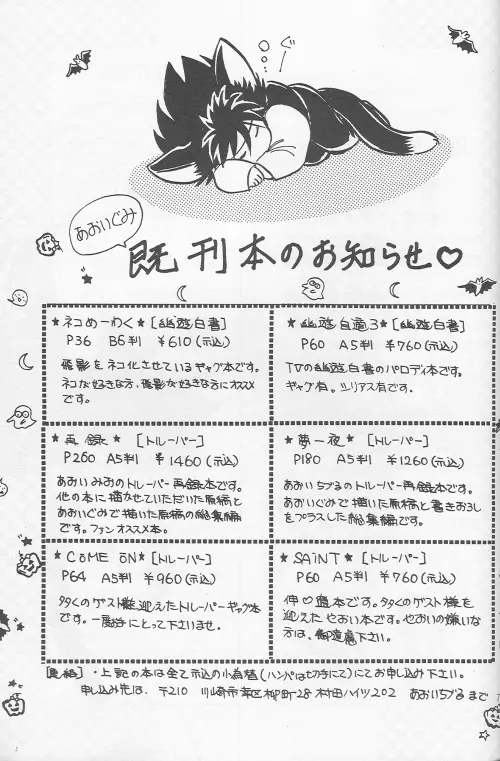 ぐー
あおいぐみ
既刊本のお知らせ♡
★ネコめーわく★［幽遊白書］
P36 B5判 ¥610(税込)
飛影をネコ化させているギャグ本です。
ネコが好きな方、飛影が好きな方にオススメ
です。
★幽遊自適3★［幽遊白書］
P60 A5判 ¥760(税込)
TVの幽遊白書のパロディ本です。
ギャグ有。シリアス有です。
★再録★［トルーパー］
P260 A5判 ¥1460(税込)
あおいみおのトルーパー再録本です。
他の本に描かせていただいた原稿と
あおいぐみで描いた原稿の総集編
です。ファンオススメ本。
★夢一夜★［トルーパー］
P180 A5判 ¥1260(税込)
あおいちづるのトルーパー再録本です。
あおいぐみで描いた原稿と書きおろし
をプラスした総集編です。
★COME ON★［トルーパー］
P64 A5判 ¥960(税込)
多くのゲスト様迎えたトルーパーギャグ本
です。一度手にとって下さいませ。
★SAINT★［トルーパー］
P60 A5判 ¥760(税込)
伸♡遼本です。多くのゲスト様を
迎えたやおい本です。やおいの嫌いな
方は、御遠慮下さい。
・上記の本は全て税込の小為替(ハンパは切手にて)にてお申し込み下さい。
申し込み先は、〒210 川崎市幸区柳町28 村田ハイツ202 あおいちづるまで